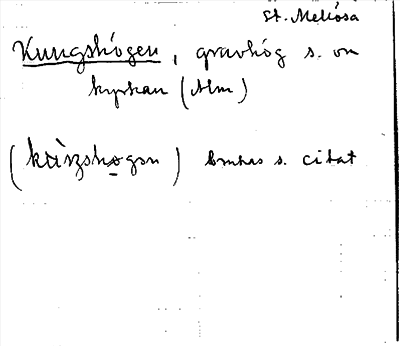 St. Mellösa
Kungshögen, gravhög s. om
kyrkan (Alm)
(kùŋshögən) s. citat